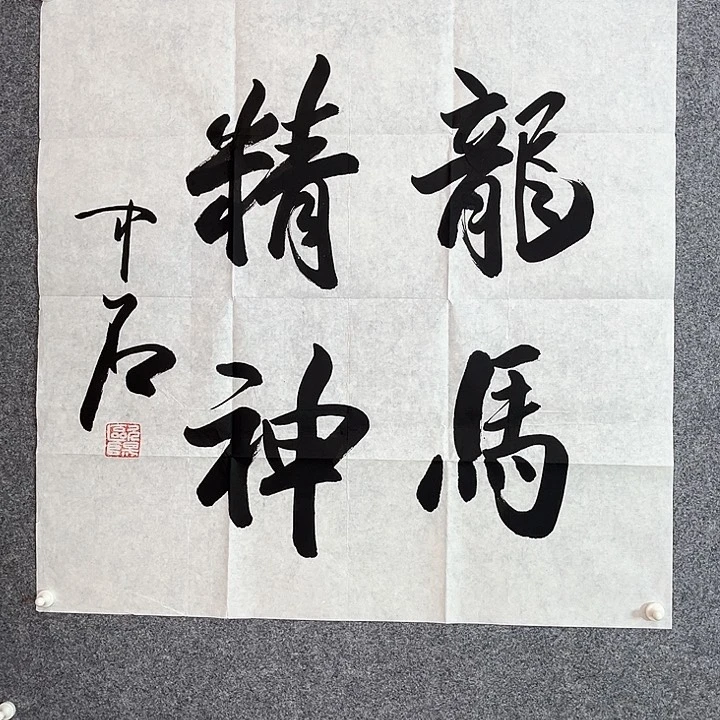 龍馬
精神
中石